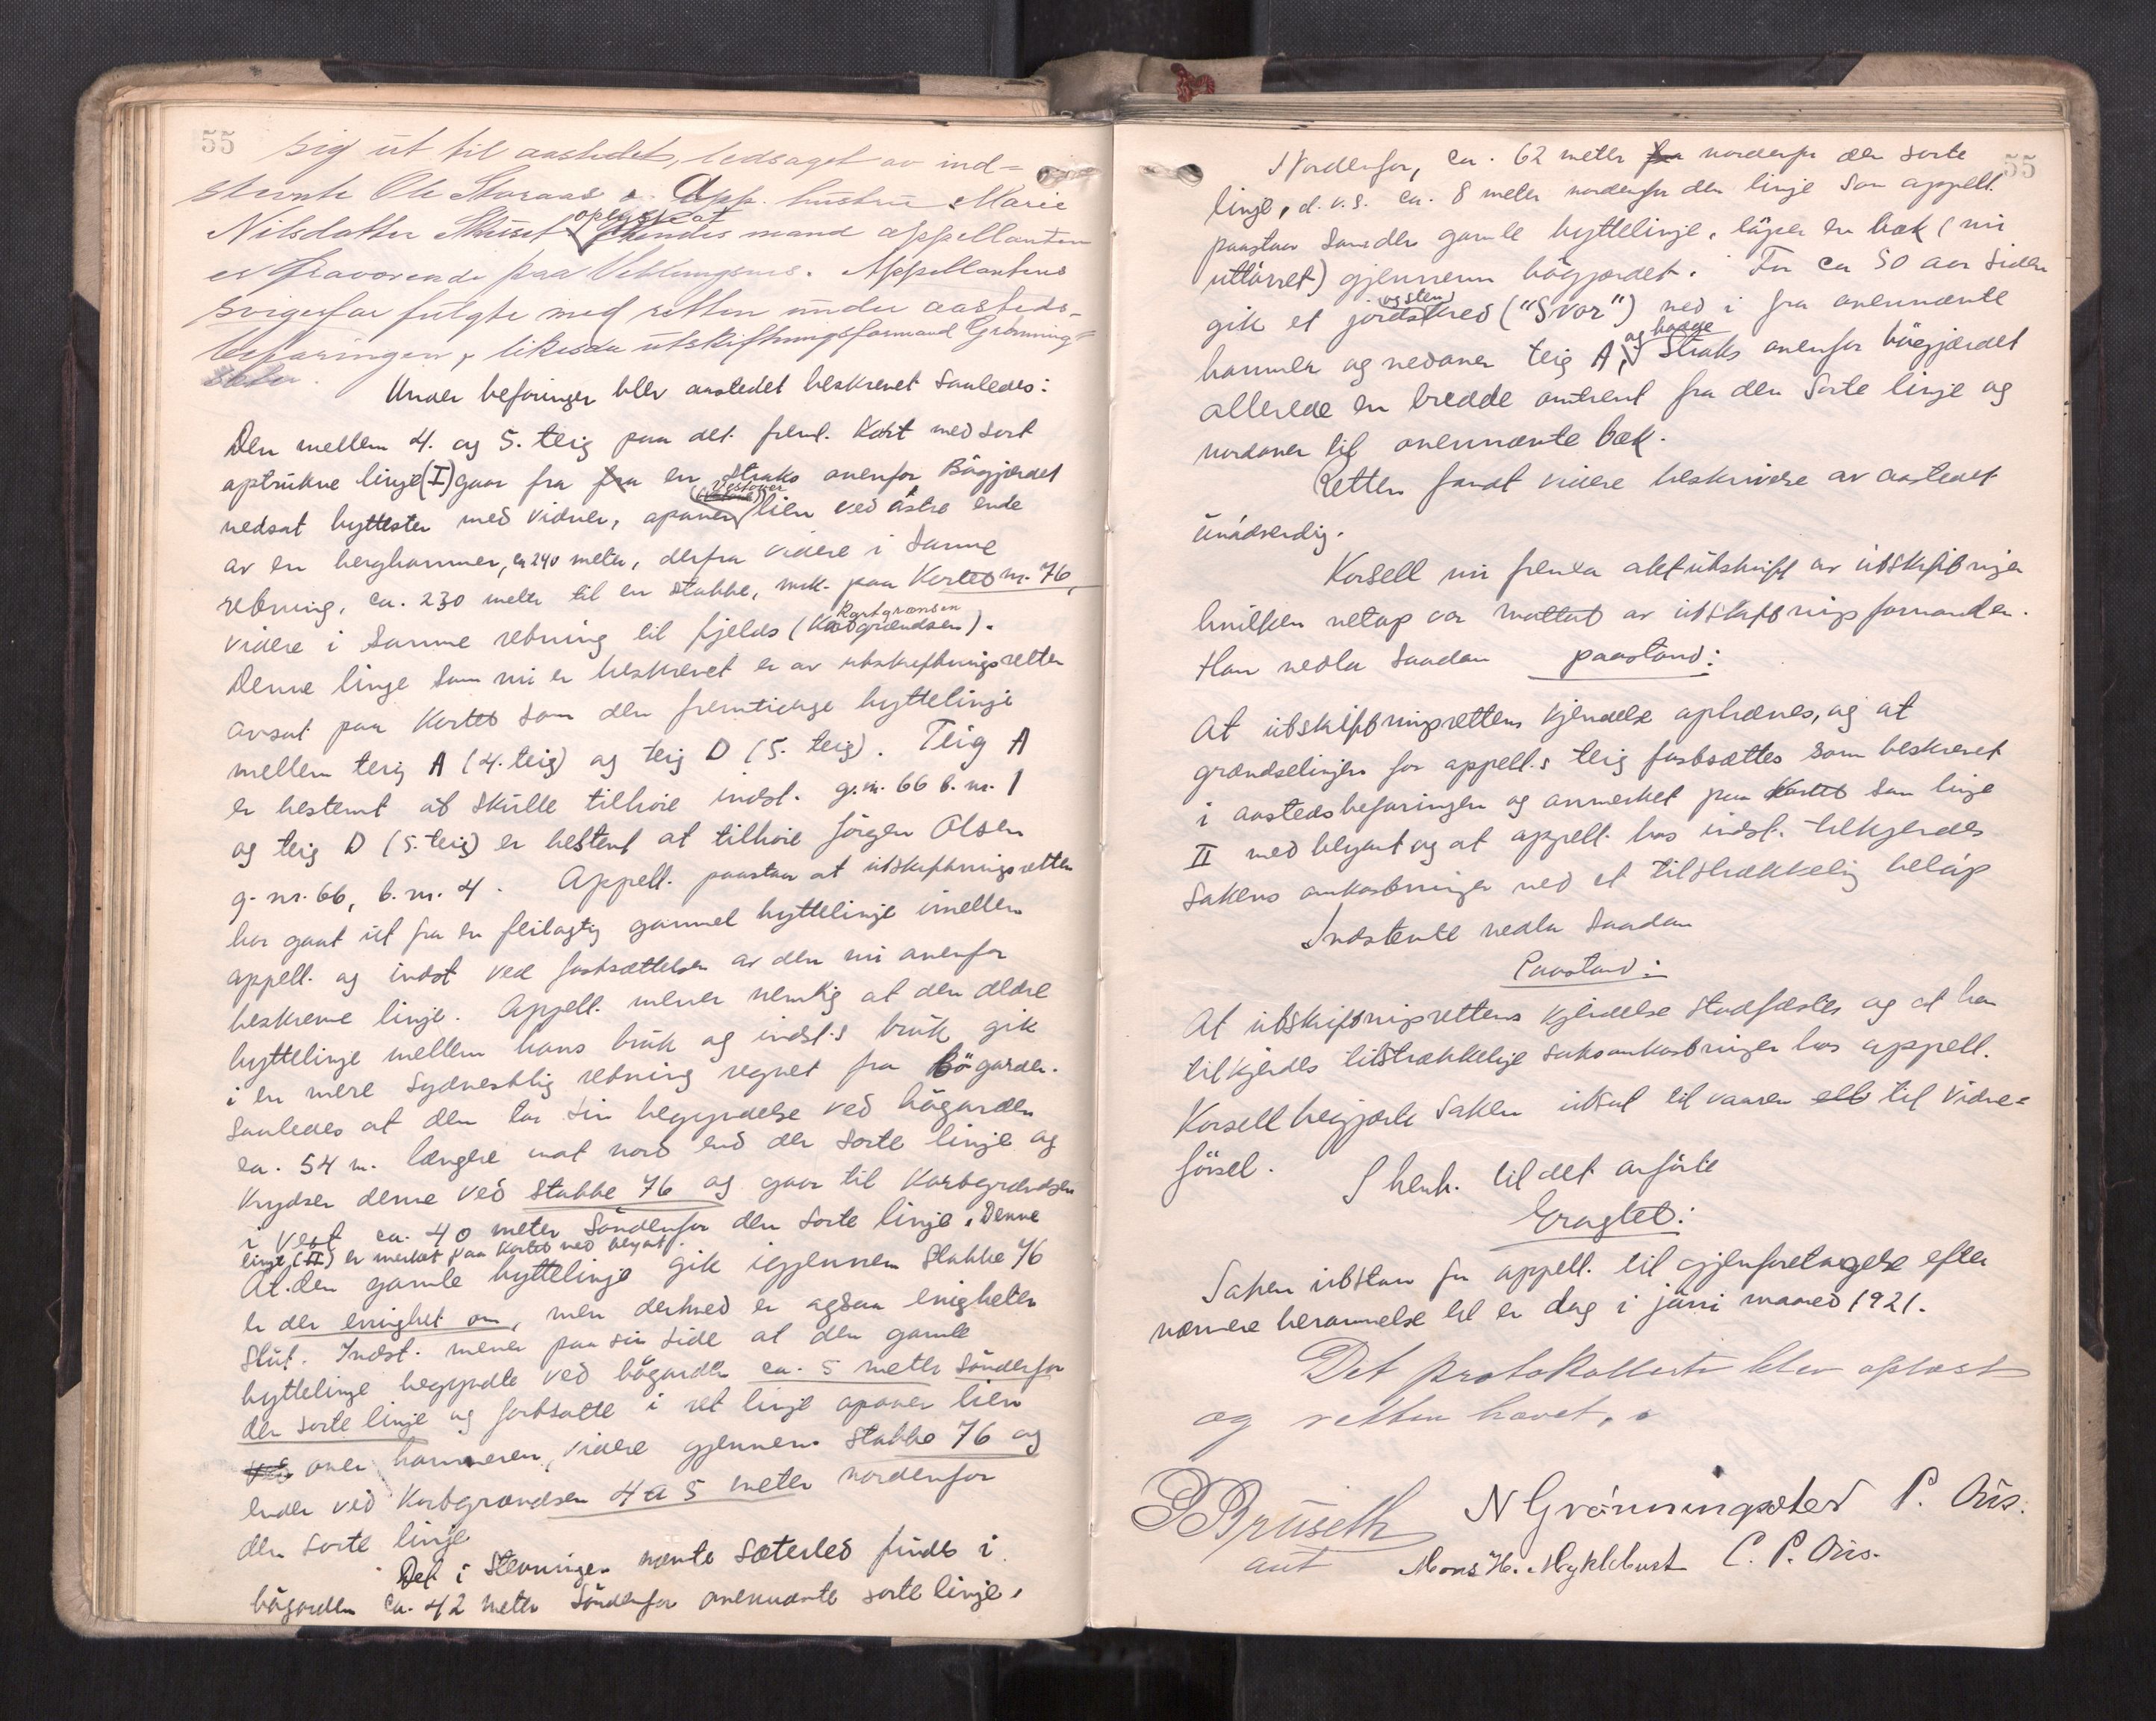 55
sig ut til aastedet, ledsaget av ind=
stevnte Ole Storaas o. App. hustru Marie
Nilsdatter Skuset oplyste at hendes mand appellanten
er fraværende paa Veblungsnes. Appellantens
svigerfar fulgte med retten under aasteds-
befaringen, likesaa utskiftningsformand Grønning=
sæter.
Under befaringen blev aastedet beskrevet saaledes:
Den mellem 4. og 5. teig paa det freml. Kart med sort
optrukne linje (I) gaar fra fra en straks ovenfor Bøgjærdet
nedsat byttesten med vidner, opover vestover lien ved østre ende
av en berghammer, ca 240 meter, derfra videre i samme
retning, ca. 230 meter til en stabbe, mrk. paa Kartet nr. 76,
videre i samme retning til fjelds (Kartgrændsen). Kartgrænsen
Denne linje som nu er beskrevet er av utskiftningsretten
avsat paa Kartet som den fremtidige byttelinje
mellem teig A (4. teig) og teig D (5. teig). Teig A
er bestemt at skulle tilhøre indst. g.nr. 66 b. nr. 1
og teig D (5. teig) er bestemt at tilhøre Jørgen Olsen
g. nr. 66, b. nr. 4. Appell. paastaar at utskiftningsretten
har gaat ut fra en feilagtig gammel byttelinje imellem
appell. og indst ved fastsættelsen av den nu ovenfor
beskrevne linje. Appell. mener nemlig at den ældre
byttelinje mellem hans bruk og indst.s bruk gik
i en mere sydvestlig retning regnet fra Bøgarden.
Saaledes at den tar sin begyndelse ved bøgarden
ca. 54 m. længere mot nord end den sorte linje og
krydser denne ved stabbe 76 og gaar til Kartgrændsen
i vest ca. 40 meter søndenfor den sorte linje. Denne
linje (II) er merket paa Kartet med blyant.
At den gamle byttelinje gik igjennem stabbe 76
er der enighet om, men dermed er ogsaa enigheten
slut. Indst. mener paa sin side at den gamle
byttelinje begyndte ved bøgarden ca. 5 meter søndenfor
den sorte linje og fortsatte i ret linje opover lien
ved over hammeren, videre gjennem stabbe 76 og
ender ved Kartgrændsen 4 a 5 meter nordenfor
den sorte linje
Det i stevningen nævnte sæterled findes i
bøgarden ca. 42 meter søndenfor ovennævnte sorte linje.
55
Nordenfor, ca. 62 meter fra nordenfor den sorte
linje, d.v.s. ca. 8 meter nordenfor den linje som appell.
paastaar som den gamle byttelinje, løper en bæk (nu
uttørret) gjennem bøgjærdet. For ca 50 aar siden
gik et jord og sten skred ("Svor") ned i fra ovennævnte
hammer og nedover teig A, og hadde straks ovenfor bøgjærdet
allerede en bredde omtrent fra den sorte linje og
nordover til ovennævnte bæk.
Retten fandt videre beskrivelse av aastedet
unødvendig.
Korsell nu fremla aktutskrift av utskiftningen
hvilken netop var mottat av utskiftningsformanden.
Han nedla saadan paastand:
At utskiftningsrettens kjendelse ophæves, og at
grændselinjen for appell.s teig fastsættes som beskrevet
i aastedsbefaringen og anmerket paa Kartet som linje
II med blyant og at appell. hos indst. tilkjendes
sakens omkostninger med et tilstrækkelig beløp
Indstevnte nedla saadan
Paastand:
At utskiftningsrettens kjendelse stadfæstes og at han
tilkjendes tilstrækkelige saksomkostninger hos appell.
Korsell begjærte saken utsat til vaaren ell til vidne=
førsel.
I henh. til det anførte
Eragtet:
Saken utstaar for appell. til gjenforetagelse efter
nærmere berammelse til en dag i juni maaned 1921.
Det protokollerte blev oplæst
og retten hævet.
P Bruseth
aut
N Grønningsæter P. Øus.
Mons H. Myklebust C. P. Øus.